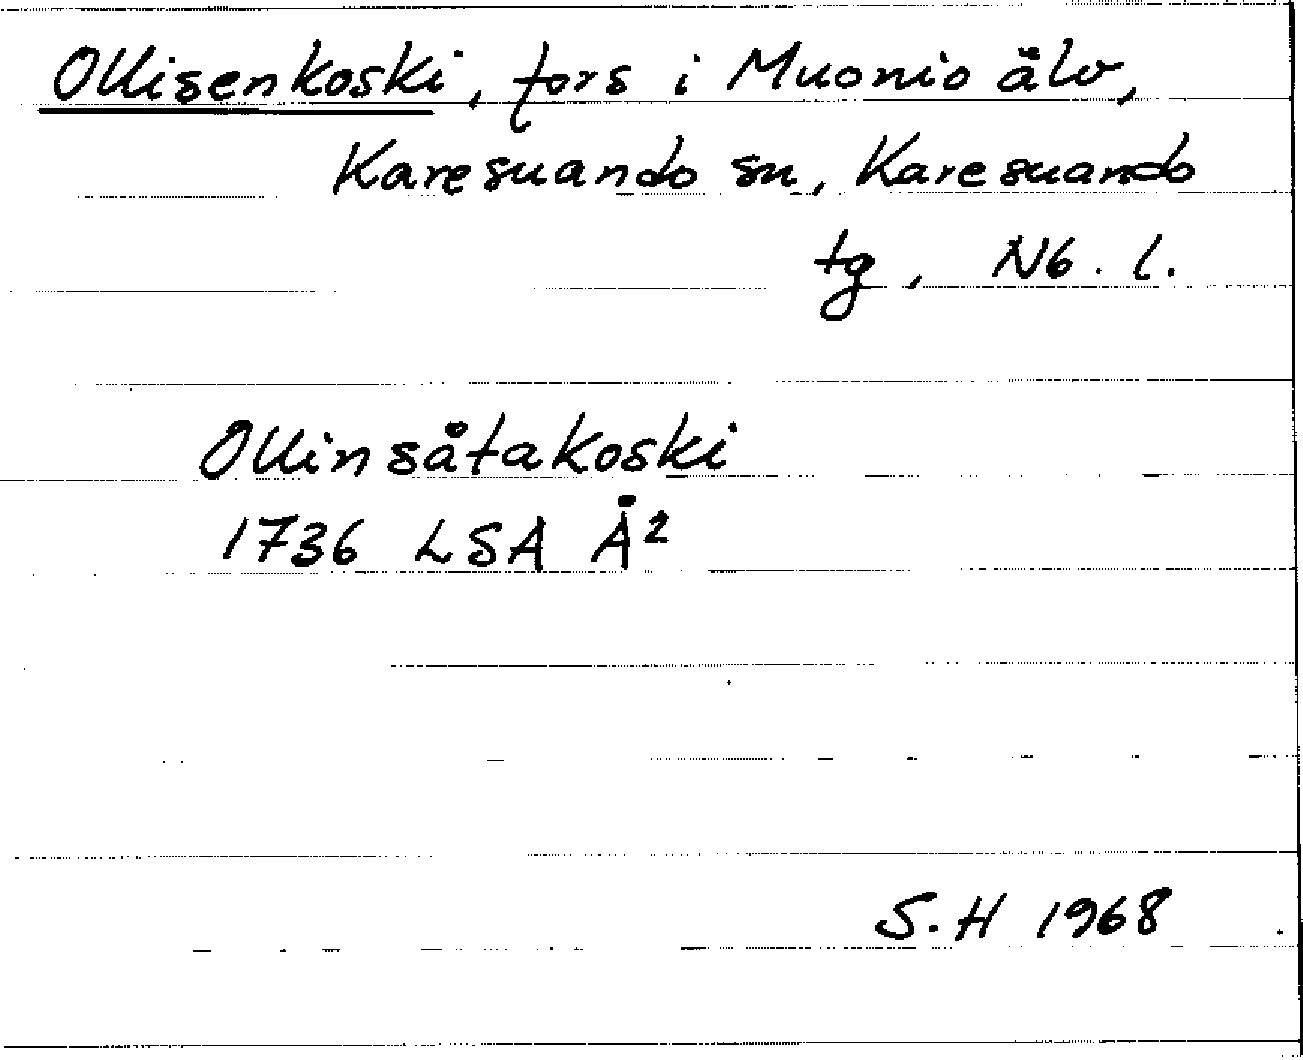 Ollisenkoski, fors i Muonio älv,
Karesuando sn, Karesuando
tg, Nb. l.
Ollinsåtakoski
1736 LSA Å²
S.H 1968